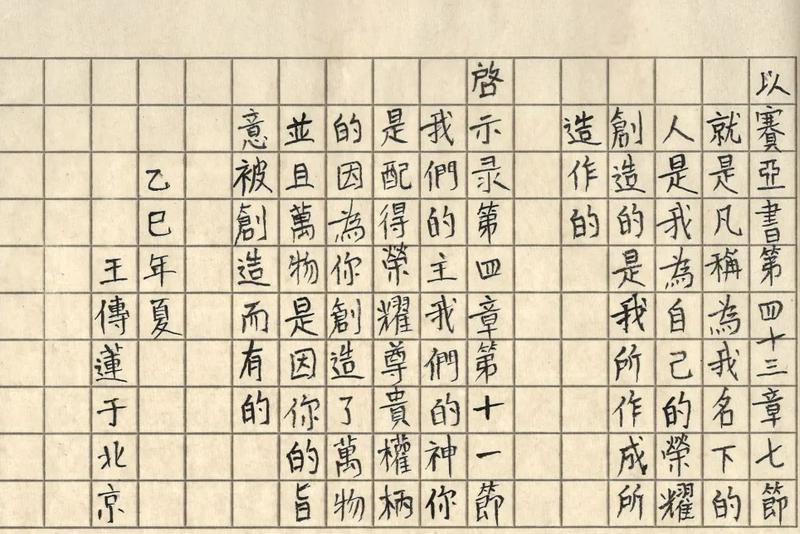 以賽亞書第四十三章七節
就是凡稱為我名下的
人是我為自己的榮耀
創造的是我所作成所
造作的
啓示录第四章第十一節
我們的主我們的神你
是配得榮耀尊貴權柄
的因為你創造了萬物
並且萬物是因你的旨
意被創造而有的
乙巳年夏
王傳蓮于北京